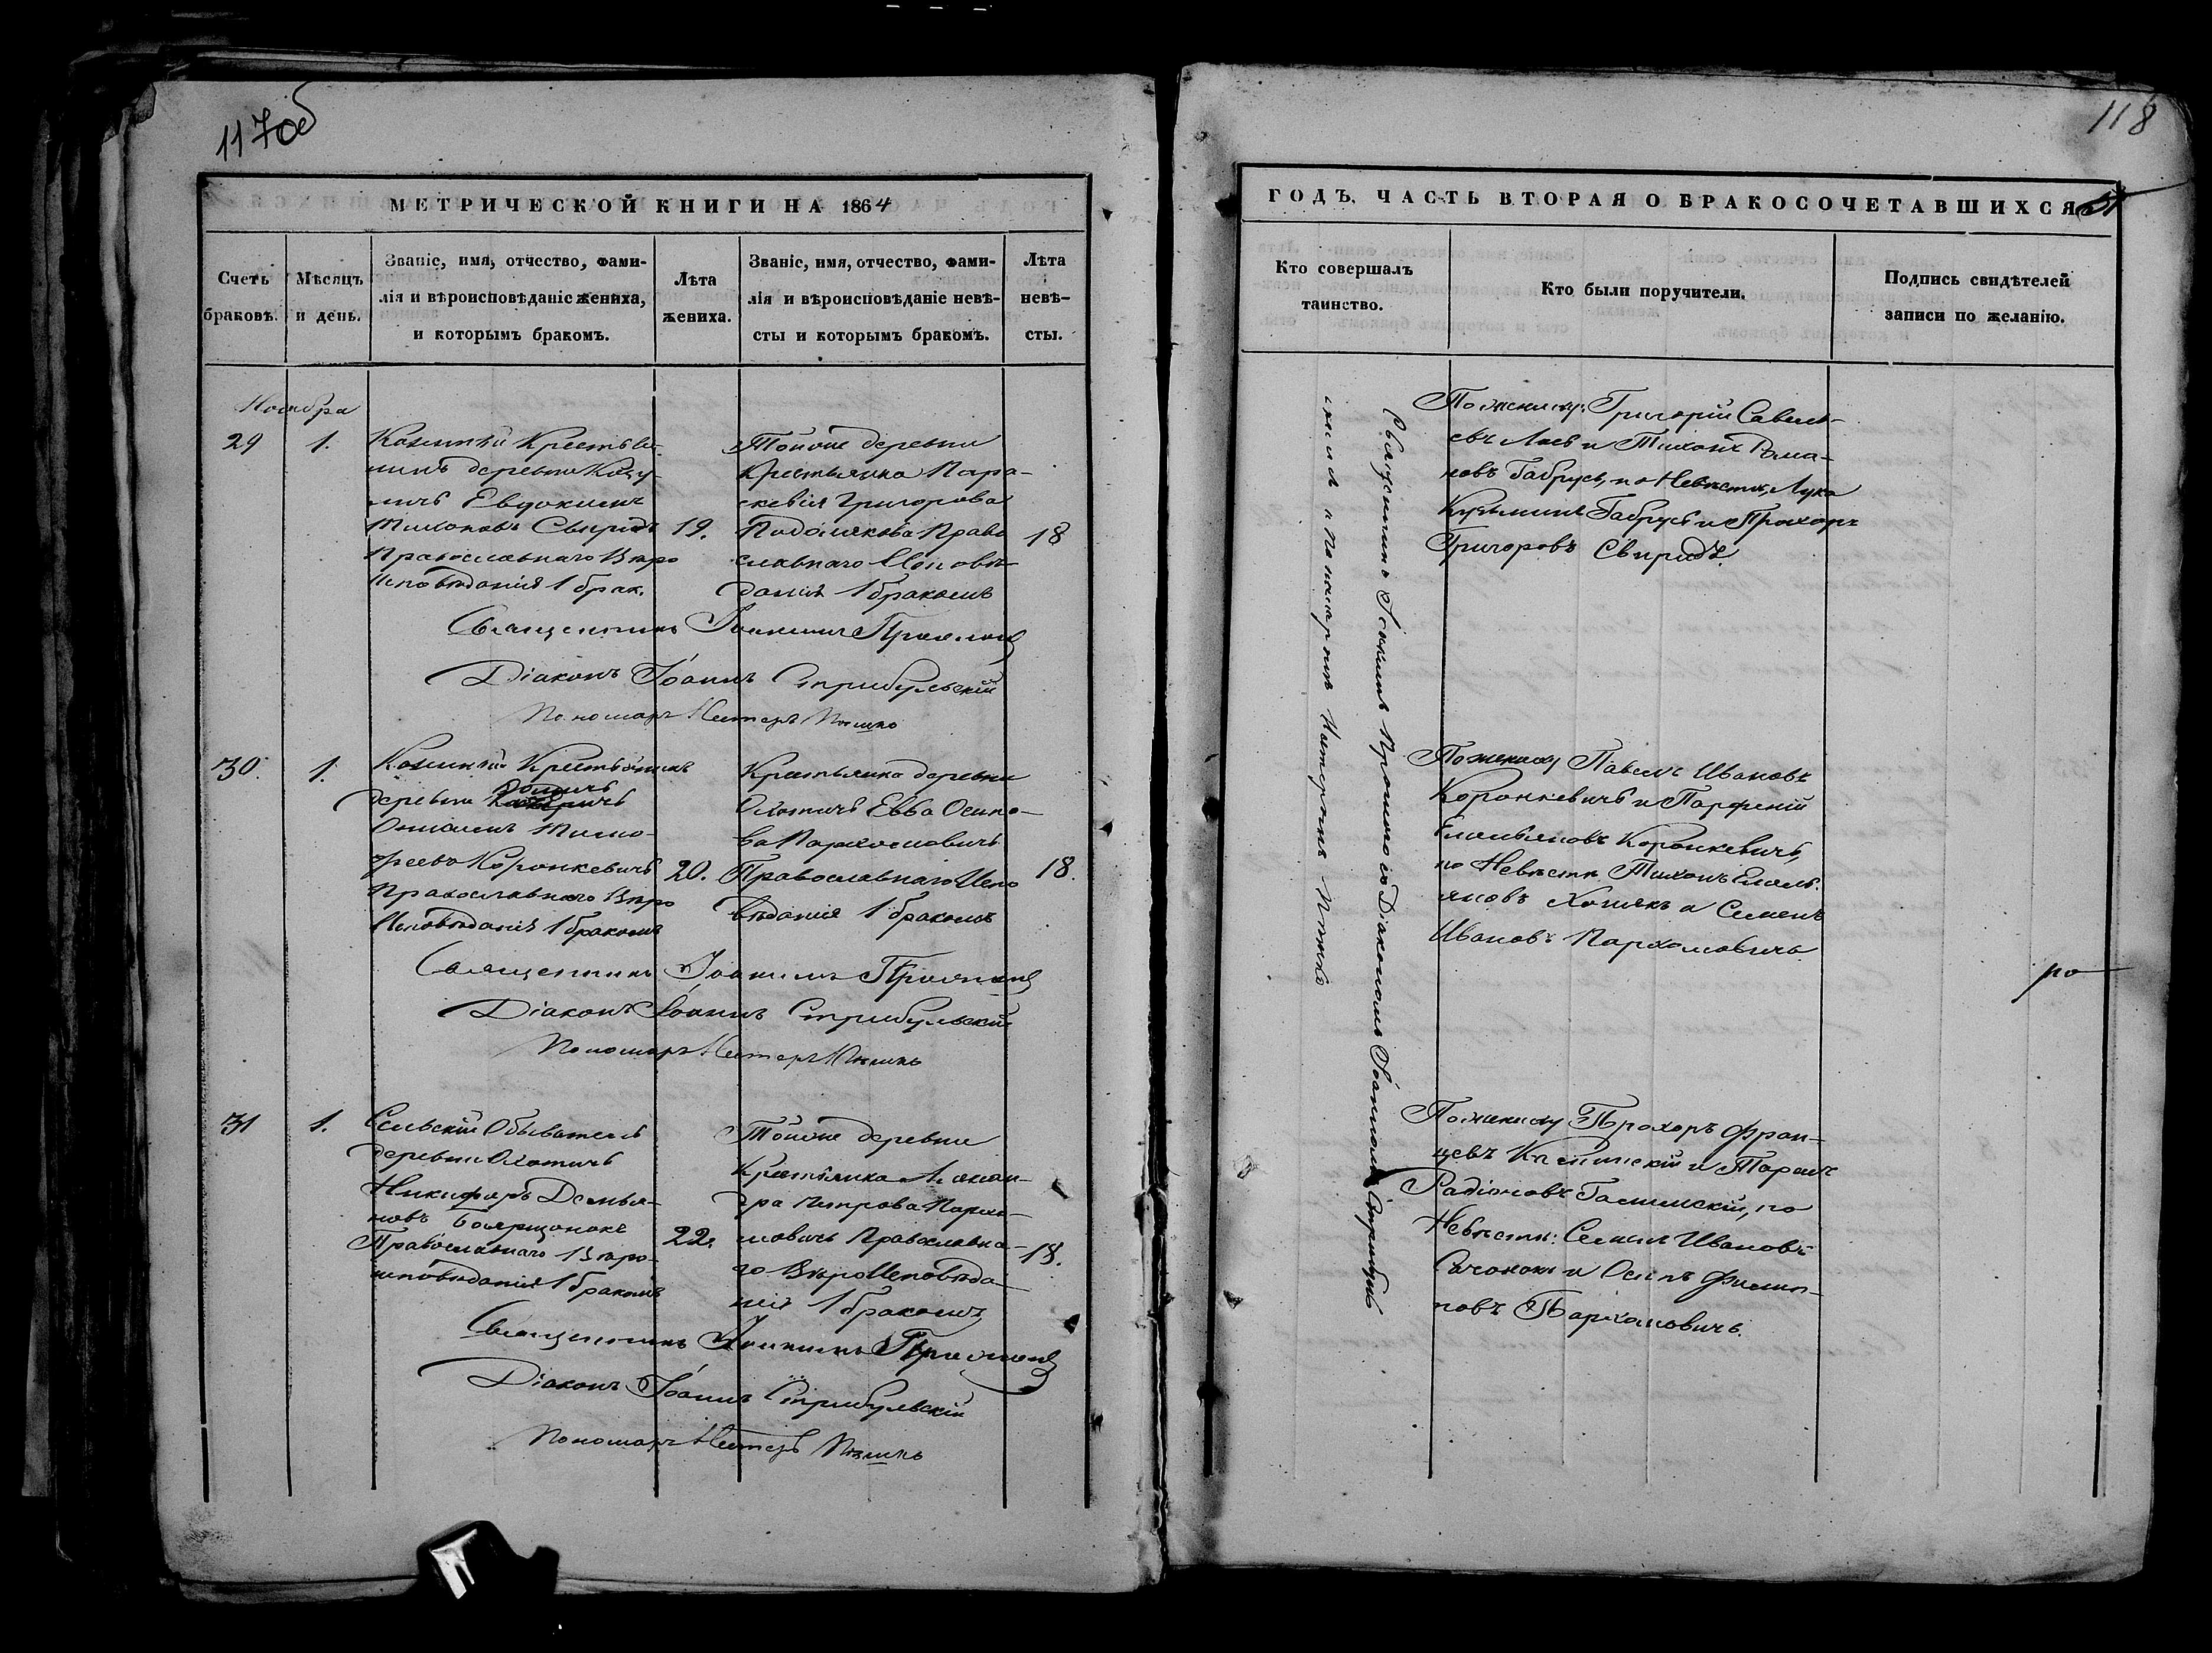 117об
МЕТРИЧЕСКОЙ КНИГИ НА 1864
Счетъ браковъ.
Мѣсяцъ и день.
Званіе, имя, отчество, фами-
лія и вѣроисповѣданіе жениха,
и которымъ бракомъ.
Лѣта
жениха.
Званіе, имя, отчество, фами-
лія и вѣроисповѣданіе невѣ-
сты и которымъ бракомъ.
Лѣта
невѣ-
сты.
Ноября
29
1.
Казенный Крестья-
нинъ деревни
Евдокимъ
Тихоновъ Свиридъ
Православнаго Вѣро
Исповѣданія 1 брак.
19.
Тойже деревни
Крестьянка Пара-
скевія Григорова
Право
славнаго Исповѣ-
данія 1 бракомъ
18
Священникъ Іоакимъ
Діаконъ Іоаннъ Стрибульскій
Пономарь Нестеръ
30.
1.
Казенный Крестьянинъ
деревни
Тимо-
феевъ Коронкевичъ
Православнаго Вѣро
Исповѣданія 1 бракомъ
20.
Крестьянка деревни
Охотичъ Евва Осипо-
ва Пархомовичъ
Православнаго Испо
вѣданія 1 бракомъ
18.
Священникъ Іоакимъ
Діаконъ Іоаннъ Стрибульскій
Пономарь Нестеръ
31
1.
Сельскій Обыватель
деревни Охотичъ
Никифоръ Демья-
новъ
Православнаго Вѣро-
исповѣданія 1 бракомъ
22.
Тойже деревни
Крестьянка
Петрова Пархо-
мовичъ Православна-
го ВѣроИсповѣда-
нія 1 бракомъ
18.
Священникъ Іоакимъ
Діаконъ Іоаннъ Стрибульскій
Пономарь Нестеръ
118
ГОДЪ, ЧАСТЬ ВТОРАЯ О БРАКОСОЧЕТАВШИХСЯ
Кто совершалъ
таинство.
Кто были поручители.
Подпись свидѣтелей
записи по желанію.
Священникъ Іоакимъ съ Діакономъ Іоанномъ Стрибуль
скимъ и Пономаремъ Нестеромъ
По жениху: Григорій Савель-
евъ и Тихонъ Рома-
новъ Габрусь, по Невѣсты, Лука
Кузьминъ Габрусь и Прохоръ
Григоровъ Свиридъ.
По жениху Павелъ Ивановъ
Коронкевичъ и Парфеній
Емельяновъ Коронкевичъ,
по Невѣстѣ Тихонъ Емель-
яновъ и Семенъ
Ивановъ Пархомовичъ
По жениху Прохоръ Фран-
цевъ и Тарасъ
Радіоновъ по
Невѣсты: Семенъ Ивановъ
и Осипъ Филип-
повъ Пархомовичъ.